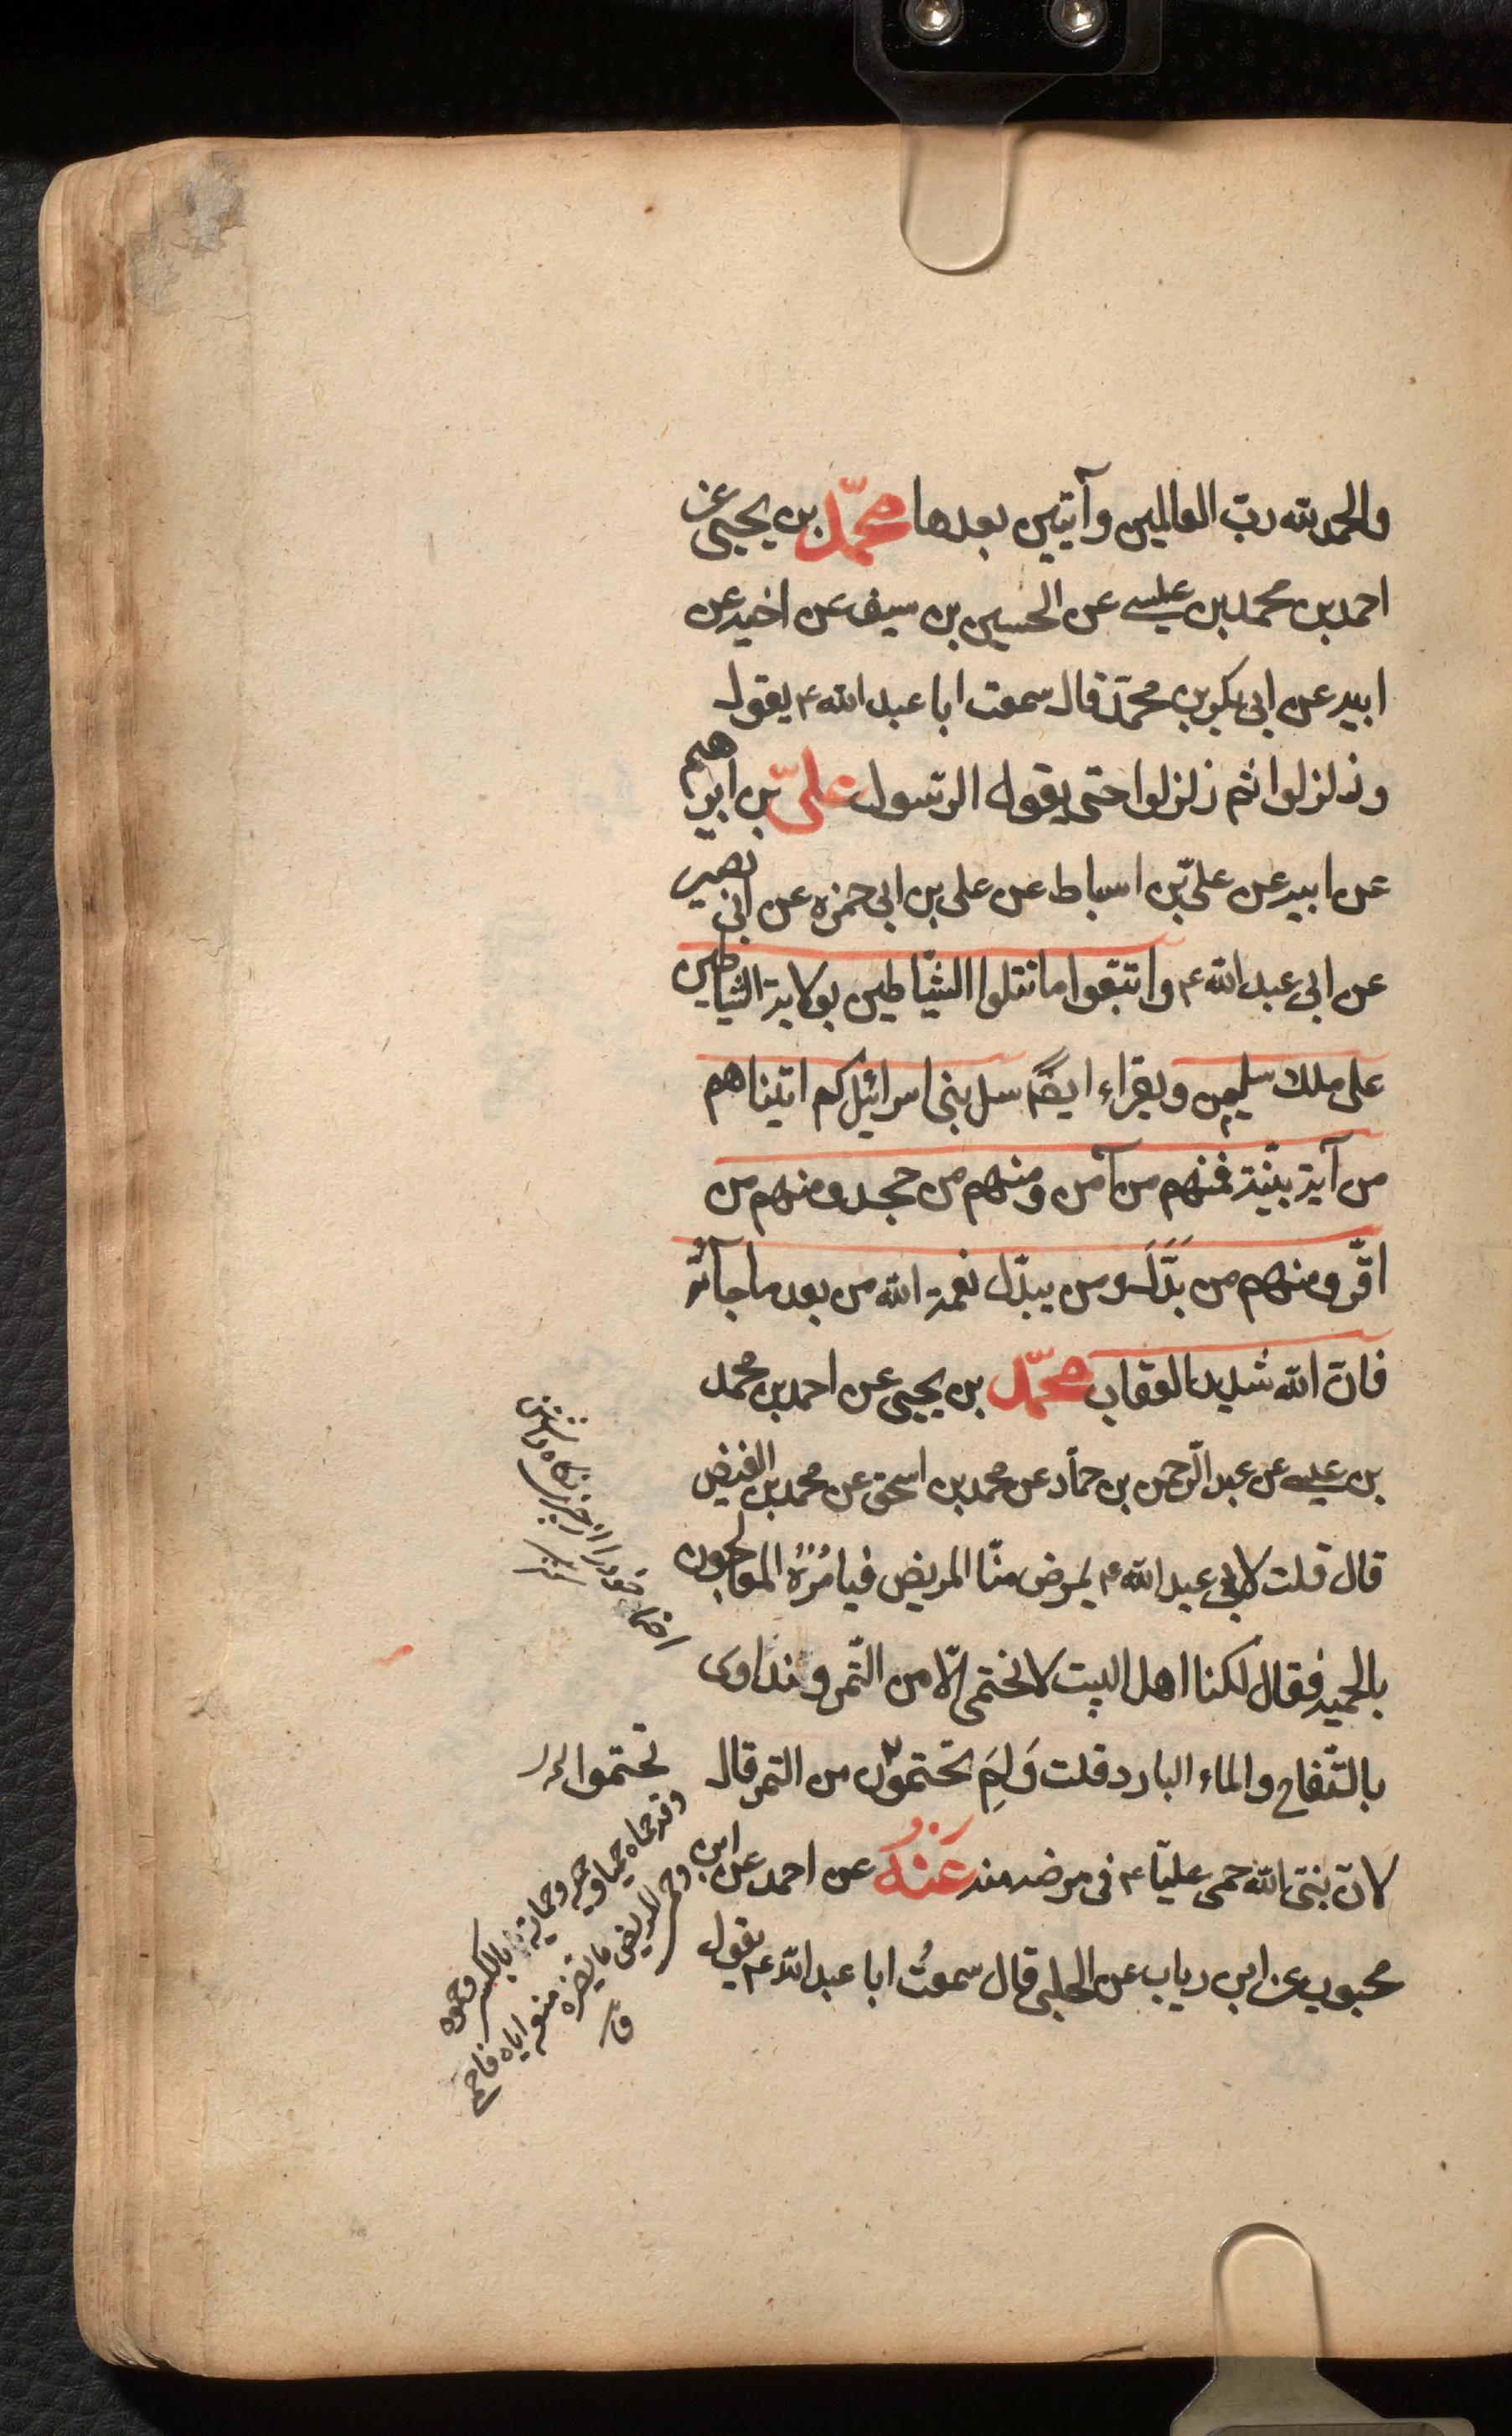 والحمد لله ربّ العالمين وآيتين بعدها محمّد بن يحيى عن
احمد بن محمد بن عيسى عن الحسين بن سيف عن اخيه عن
ابيه عن ابى بكر بن محمّد قال سمعت ابا عبد الله ع يقول
وزلزلوا ثم زلزلوا حتى يقول الرّسول علىّ بن ابرهيم
عن ابيه عن علىّ بن اسباط عن على بن ابى حمزه عن ابى بصير
عن ابى عبد الله ع واتبعوا ما تتلوا الشّياطين بولاية الشياطين
على ملك سليمن ويقراء ايضًا سل بنى اسرائيل كم اتيناهم
من آية بيّنة فمنهم من آمن ومنهم من جحد ومنهم من
اقرّ ومنهم من بَدَّلَ ومن يبدّل نعمة الله من بعد ما جآئته
فانّ الله شديد العقاب محمّد بن يحيى عن احمد بن محمد
بن عيسى عن عبد الرّحمن بن حمّاد عن محمد بن اسحق عن محمد بن الفيض
قال قلت لابى عبد الله ع يمرض منّا المريض فيامُرُهُ المعالجون
بالحميه فقال لكنا اهل البيت لا نحتمى الّا من التّمر ونتداوى
بالتّفاح والماء البارد قلت وَلِمَ تحتموّن من التمر قال
لانّ نبىّ الله حمى عليّا ع فى مرضه منه عَنْهُ عن احمد عن ابن
محبوب عن ابن رياب عن الحلبى قال سمعتُ ابا عبد الله ع يقول
احتما خود را از چيزى نكاه داشتن
كنز
تحتموا
وقد حماه حميا وحمية وحماية بالكسر وحموه
وحمى المريض ما يضره منعه اياه فاحتمى
ق